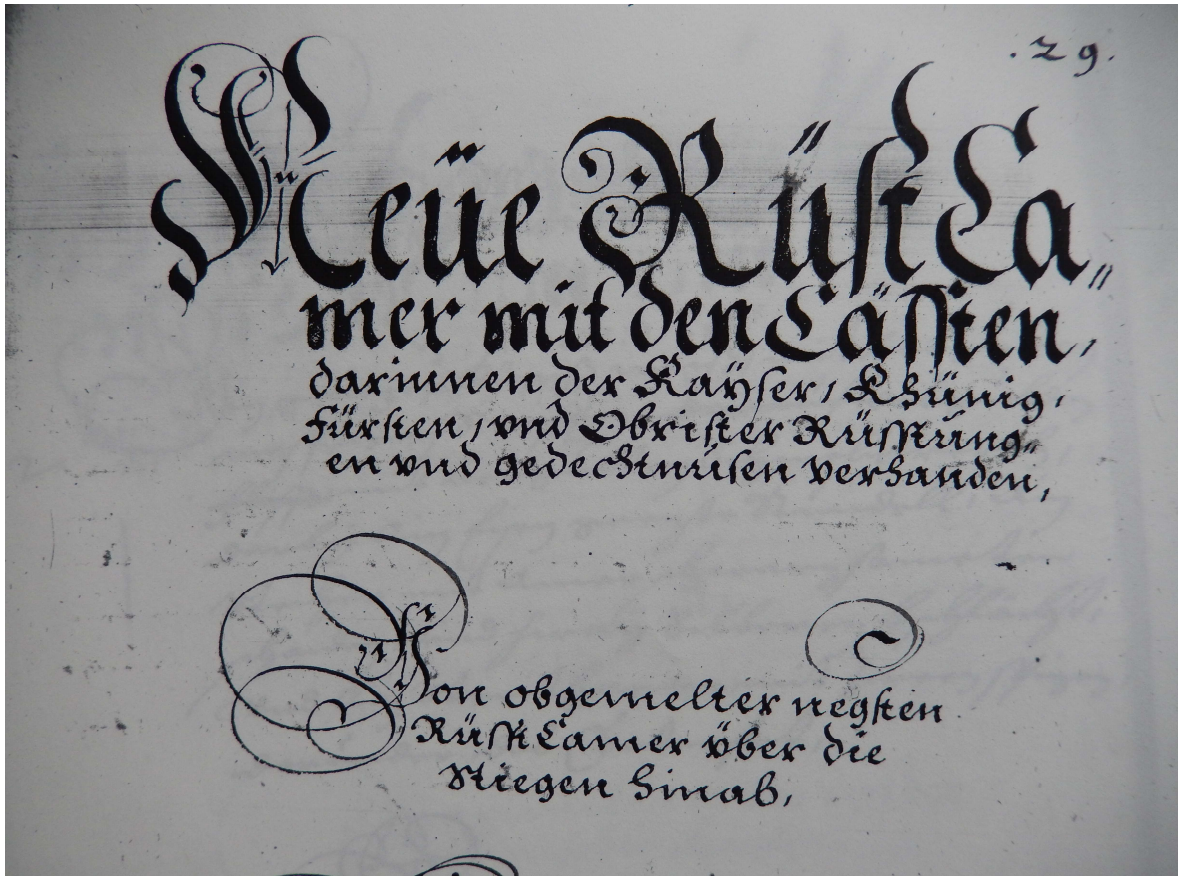 .29.
Neüe Rüst Ca„
mer mit den Cässten,
darinnen der Kayser, Khünig,
Fürsten, vnd Obrister Rüsstung„
en vnd gedechtnusen verhanden,
Von obgemelter negsten
Rüsst Camer über die
Stiegen hinab,